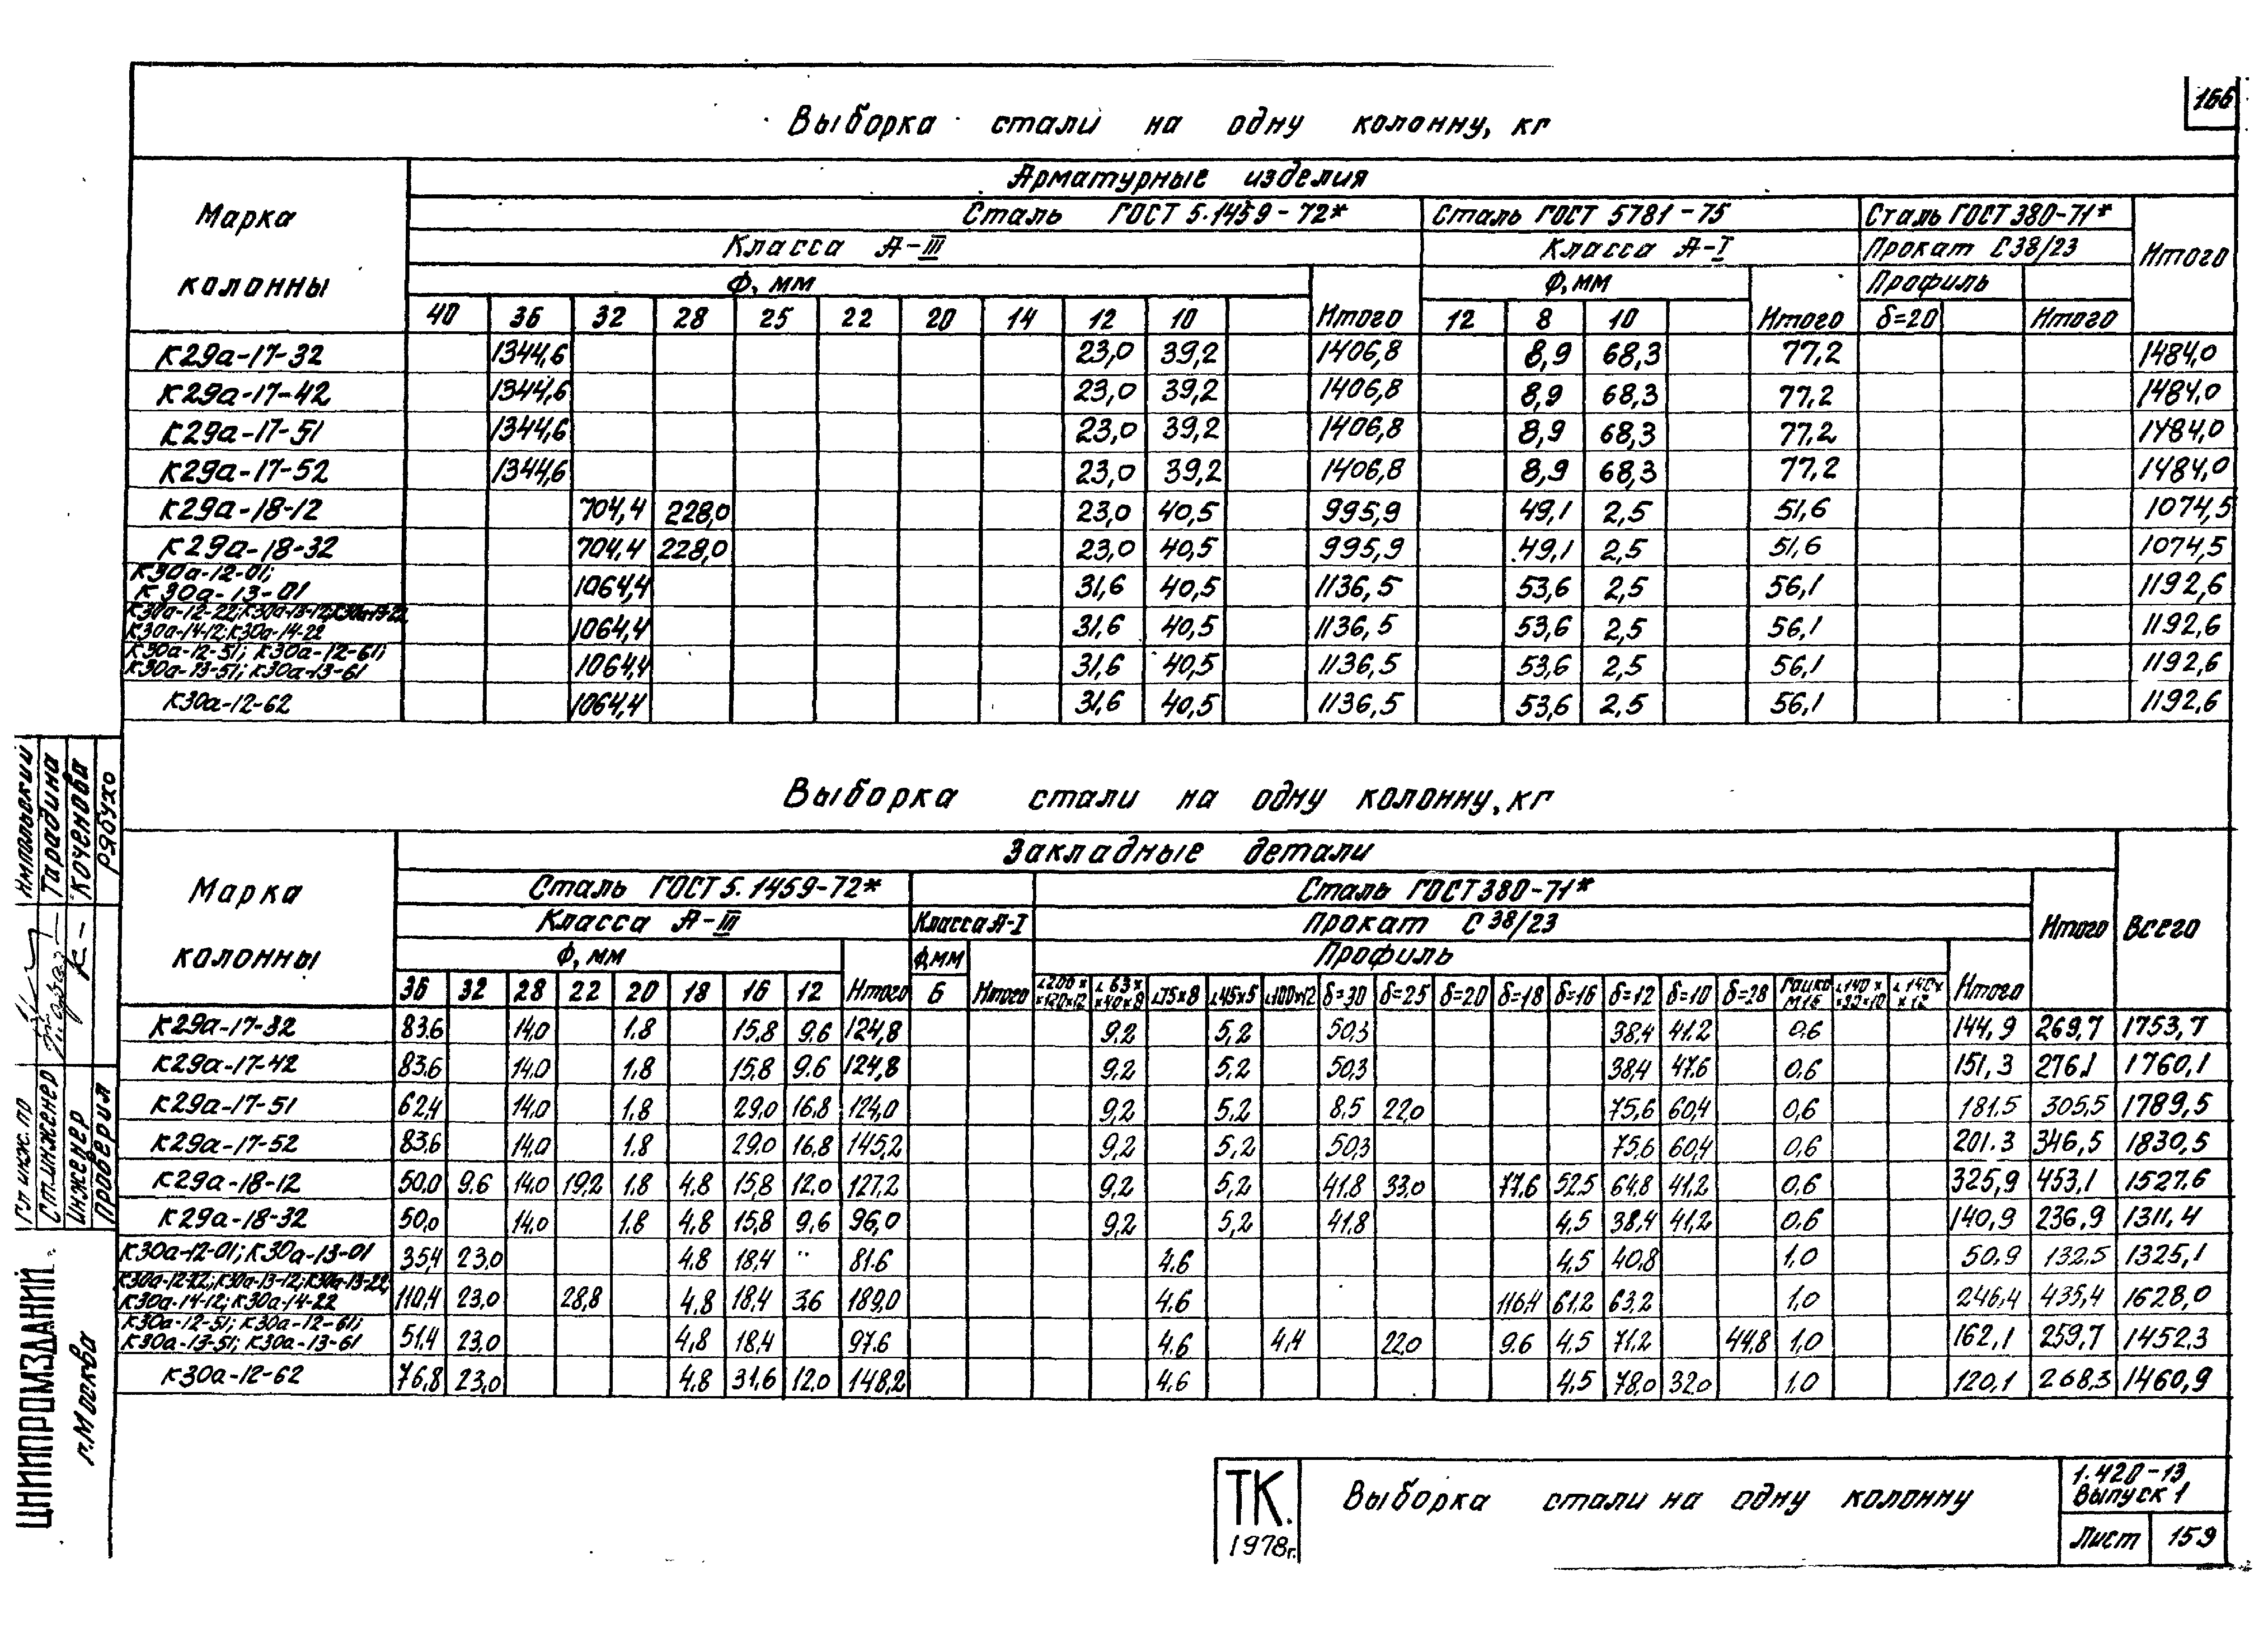 166
Выборка стали на одну колонну, кг
Марка колонны
Арматурные изделия
Сталь ГОСТ 5.1459-72* Сталь ГОСТ 5781-75 Сталь ГОСТ 380-71* Итого
Класса А-III Класса А-I Прокат С38/23
Ф, мм Итого Ф, мм Итого Профиль
40 36 32 28 25 22 20 14 12 10 12 8 10 δ=20 Итого
К29а-17-32 1344,6 23,0 39,2 1406,8 8,9 68,3 77,2 1484,0
К29а-17-42 1344,6 23,0 39,2 1406,8 8,9 68,3 77,2 1484,0
К29а-17-51 1344,6 23,0 39,2 1406,8 8,9 68,3 77,2 1484,0
К29а-17-52 1344,6 23,0 39,2 1406,8 8,9 68,3 77,2 1484,0
К29а-18-12 704,4 228,0 23,0 40,5 995,9 49,1 2,5 51,6 1074,5
К29а-18-32 704,4 228,0 23,0 40,5 995,9 49,1 2,5 51,6 1074,5
К30а-12-01;
К30а-13-01 1064,4 31,6 40,5 1136,5 53,6 2,5 56,1 1192,6
К30а-12-22; К30а-13-12; К30а-13-22
К30а-14-12; К30а-14-22 1064,4 31,6 40,5 1136,5 53,6 2,5 56,1 1192,6
К30а-12-51; К30а-12-61;
К30а-13-51; К30а-13-61 1064,4 31,6 40,5 1136,5 53,6 2,5 56,1 1192,6
К30а-12-62 1064,4 31,6 40,5 1136,5 53,6 2,5 56,1 1192,6
Выборка стали на одну колонну, кг
Марка колонны
Закладные детали
Сталь ГОСТ 5.1459-72* Сталь ГОСТ 380-71*
Класса А-III Класса А-I Прокат С38/23 Итого Всего
Ф, мм Ф, мм Профиль
36 32 28 22 20 18 16 12 Итого 6 Итого ∟200××120×12 ∟63××40×8 ∟75×8 ∟45×5 ∟100×12 δ=30 δ=25 δ=20 δ=18 δ=16 δ=12 δ=10 δ=28 Гайка М16 ∟140××90×10 ∟140××12 Итого
К29а-17-32 83.6 14.0 1.8 15,8 9.6 124,8 9.2 5,2 50,3 38,4 41.2 0.6 144,9 269,7 1753,7
К29а-17-42 83.6 14.0 1.8 15,8 9.6 124,8 9.2 5,2 50,3 38,4 47.6 0.6 151,3 276,1 1760,1
К29а-17-51 62,4 14,0 1.8 29,0 16,8 124,0 9,2 5,2 8.5 22,0 75,6 60,4 0,6 181.5 305,5 1789,5
К29а-17-52 83,6 14,0 1.8 29,0 16,8 145,2 9,2 5,2 50,3 75,6 60,4 0,6 201.3 346,5 1830,5
К29а-18-12 50,0 9.6 14,0 19,2 1.8 4.8 15,8 12,0 127,2 9,2 5,2 41.8 33,0 77.6 52.5 64.8 41,2 0.6 325,9 453,1 1527.6
К29а-18-32 50,0 14.0 1.8 4,8 15,8 9,6 96,0 9,2 5,2 41.8 4,5 38,4 41,2 0.6 140,9 236,9 1311,4
К30а-12-01; К30а-13-01 35,4 23,0 4.8 18,4 81.6 4.6 4,5 40,8 1,0 50.9 132,5 1325,1
К30а-12-22; К30а-13-12; К30а-13-22;
К30а-14-12; К30а-14-22 110,4 23,0 28,8 4.8 18,4 3.6 189,0 4.6 116,4 61.2 63,2 1.0 246,4 435,4 1628,0
К30а-12-51; К30а-12-61;
К30а-13-51; К30а-13-61 51,4 23,0 4,8 18,4 97.6 4.6 4,4 22,0 9.6 4.5 71,2 44,8 1,0 162,1 259,7 1452,3
К30а-12-62 76,8 23,0 4.8 31,6 12,0 148,2 4.6 4,5 78,0 32,0 1.0 120,1 268,3 1460,9
Гл инж. пр
Ст.инженер Тарадина
Инженер Коченова
Проверил Рябухо
ЦНИИПРОМЗДАНИЙ
г.Москва
ТК.
1978г.
Выборка стали на одну колонну
1.420-13
Выпуск 1
Лист 159